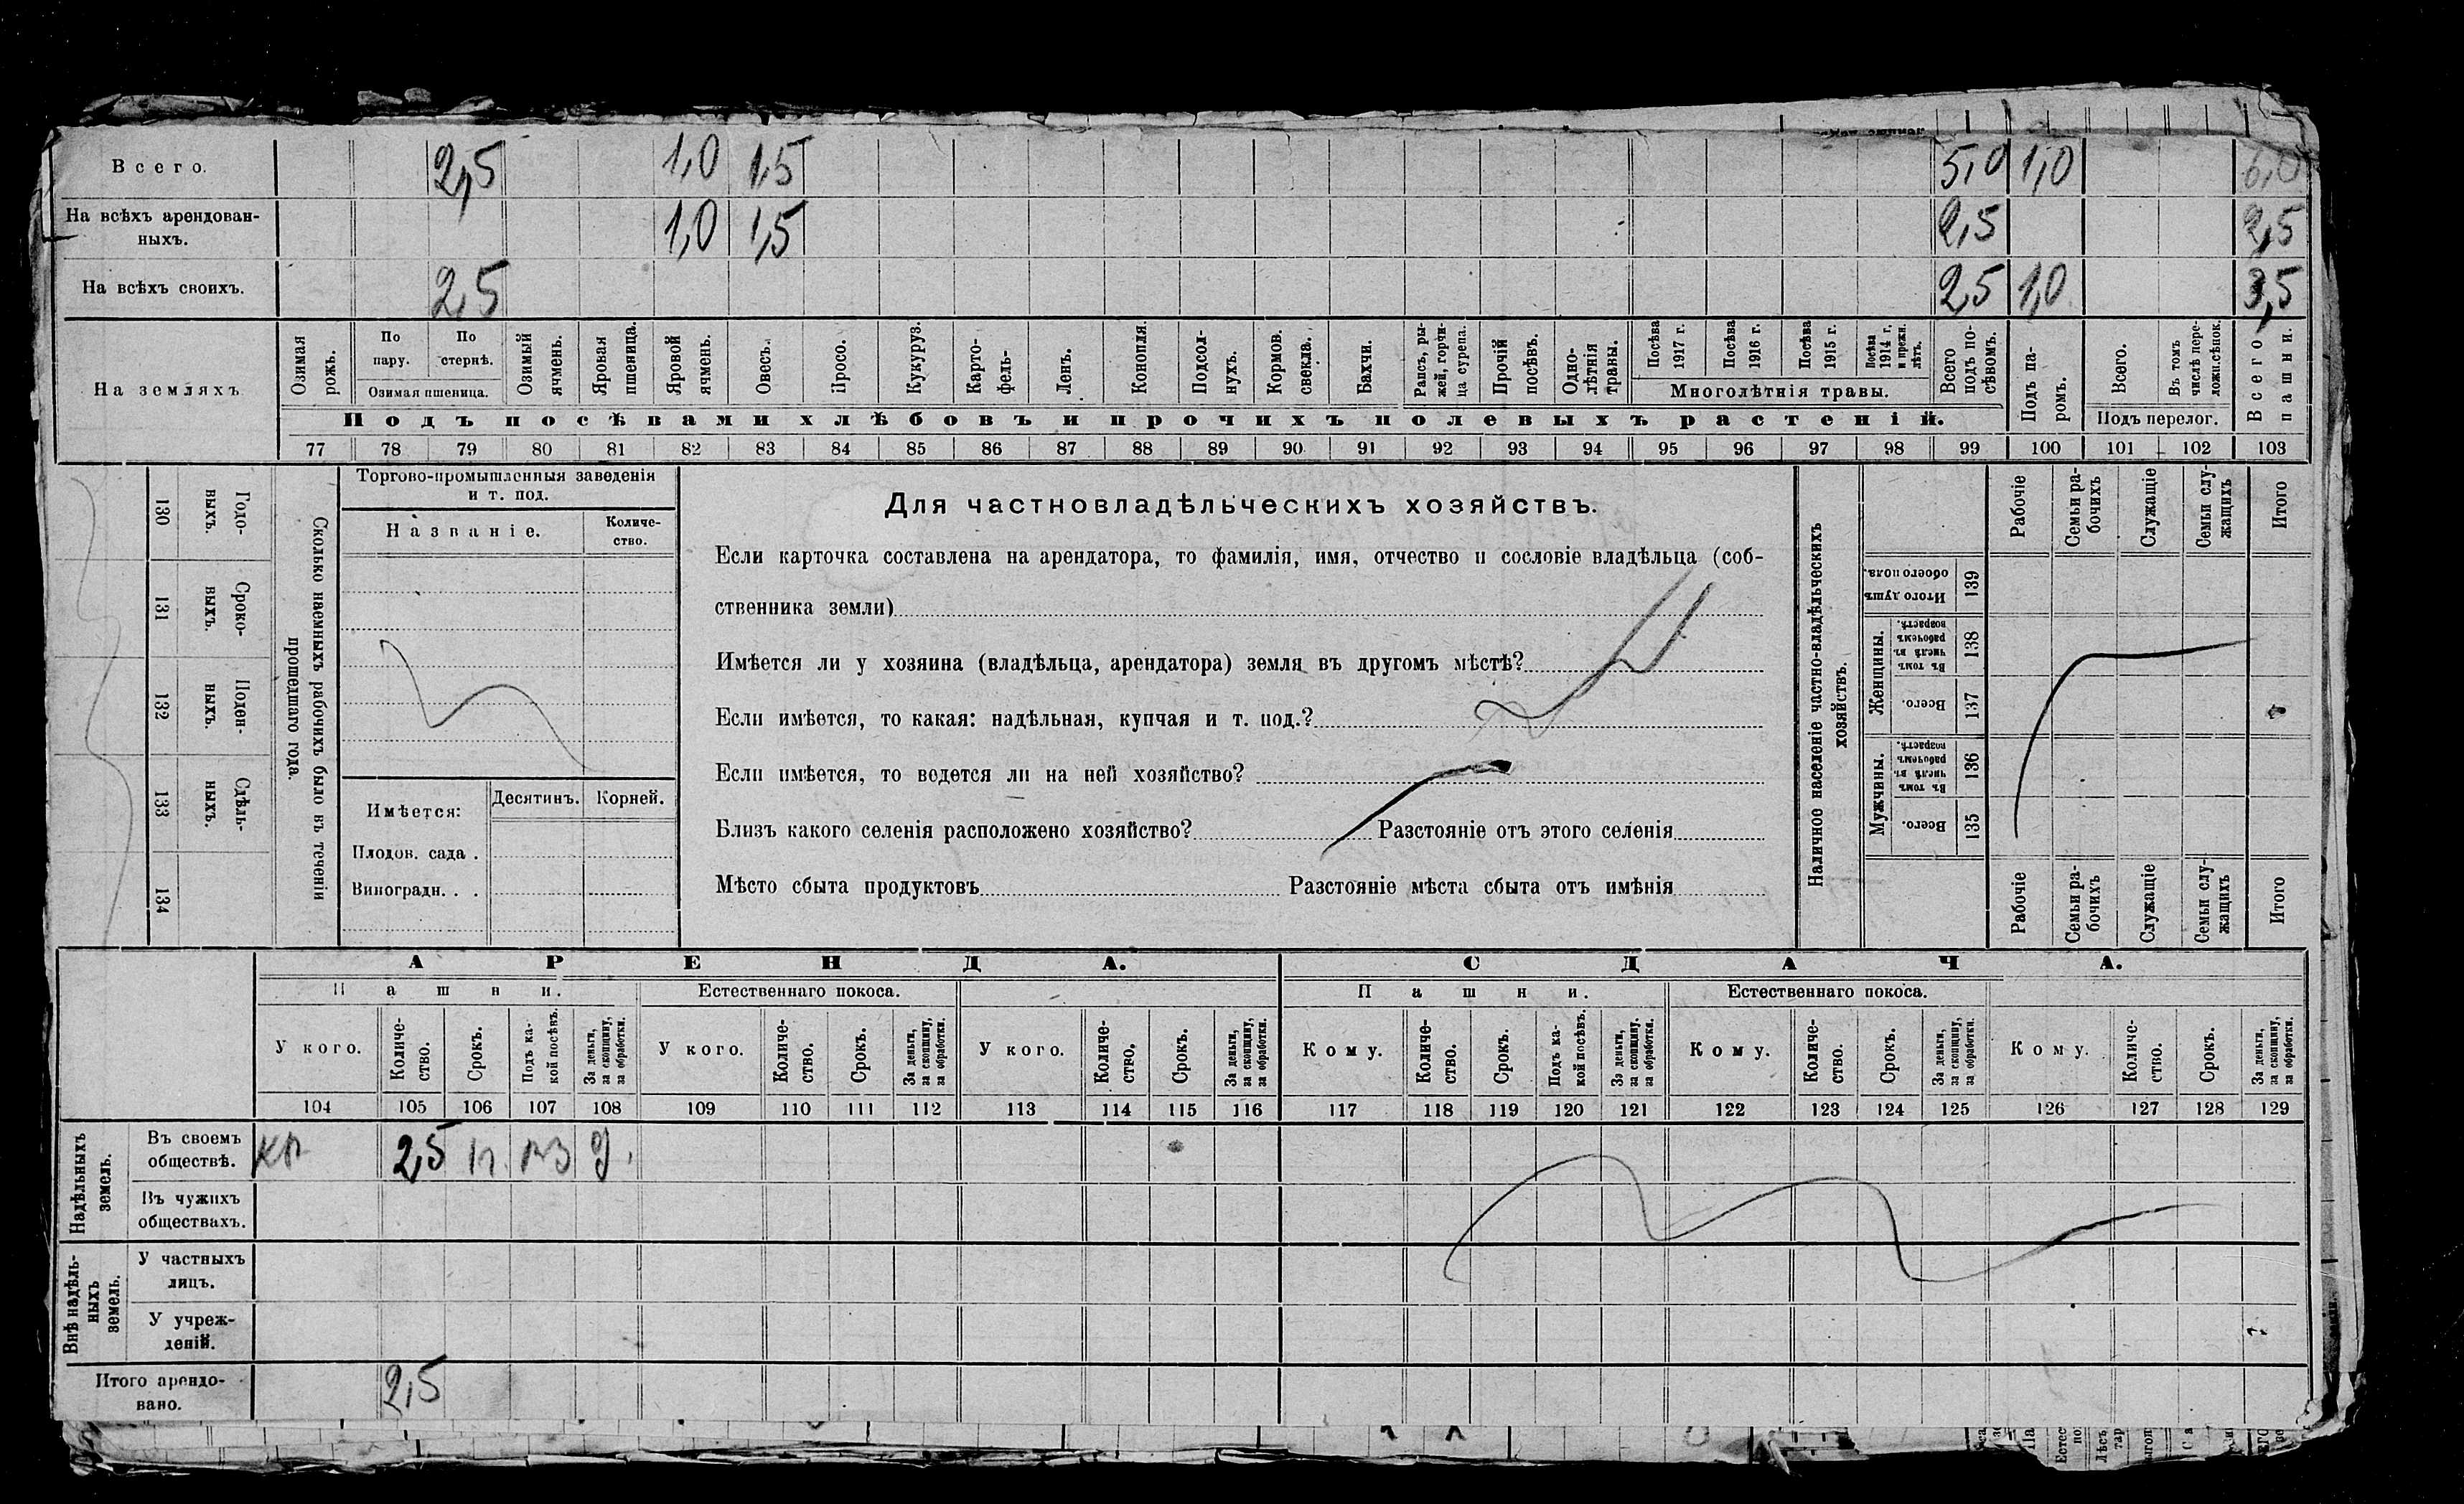 Всего. 2,5 1,0 1,5 5,0 1,0 6,0
На всѣхъ арендован-
ныхъ. 1,0 1,5 2,5 2,5
На всѣхъ своихъ. 2,5 2,5 1,0 3,5
На земляхъ
Озимая рожь.
По пару.
По стернѣ.
Озимая пшеница.
Озимый ячмень.
Яровая пшеница.
Яровой ячмень.
Овесъ.
Просо.
Кукуруз.
Карто-
фель.
Ленъ.
Конопля.
Подсол-
нухъ.
Кормов.
свекла.
Бахчи.
Рапсъ, ры-
жей, горчи-
ца сурепа.
Прочій
посѣвъ.
Одно-
лѣтнія
травы.
Посѣва
1917 г.
Посѣва
1916 г.
Посѣва
1915 г.
Посѣва
1914 г.
и прежн.
лѣтъ.
Многолѣтнія травы.
Всего
подъ по-
сѣвомъ.
Подъ па-
ромъ.
Всего.
Въ томъ
числѣ пере-
ложн.сѣнок.
Подъ перелог.
Всего
пашни.
Подъ посѣвами хлѣбовъ и прочихъ полевыхъ растеній.
77 78 79 80 81 82 83 84 85 86 87 88 89 90 91 92 93 94 95 96 97 98 99 100 101 102 103
130 Годо-
выхъ.
131 Сроко-
выхъ.
132 Поден-
ныхъ.
133 Сдѣль-
ныхъ.
134
Сколько наемныхъ рабочихъ было въ теченіи
прошедшаго года.
Торгово-промышленныя заведенія
и т. под.
Названіе.
Количе-
ство.
Имѣется: Десятинъ. Корней.
Плодов. сада .
Виноградн. . .
Для частновладѣльческихъ хозяйствъ.
Если карточка составлена на арендатора, то фамилія, имя, отчество и сословіе владѣльца (соб-
ственника земли)
Имѣется ли у хозяина (владѣльца, арендатора) земля въ другомъ мѣстѣ?
Если имѣется, то какая: надѣльная, купчая и т. под.?
Если имѣется, то ведется ли на ней хозяйство?
Близъ какого селенія расположено хозяйство? Разстояніе отъ этого селенія
Мѣсто сбыта продуктовъ Разстояніе мѣста сбыта отъ имѣнія
Наличное населеніе частно-владѣльческихъ
хозяйствъ.
Рабочіе
Семьи ра-
бочихъ
Служащіе
Семьи слу-
жащихъ
Итого
Итого душъ
обоего пола.
139
Женщины.
Въ томъ
числѣ въ
рабочемъ
возрастѣ.
138
Всего.
137
Мужчины.
Въ томъ
числѣ въ
рабочемъ
возрастѣ.
136
Всего.
135
Рабочіе
Семьи ра-
бочихъ
Служащіе
Семьи слу-
жащихъ
Итого
АРЕНДА. СДАЧА.
Пашни. Естественнаго покоса. Пашни. Естественнаго покоса.
У кого.
Количе-
ство.
Срокъ.
Подъ ка-
кой посѣвъ.
За деньги,
за скопщину,
за обработки.
У кого.
Количе-
ство.
Срокъ.
За деньги,
за скопщину,
за обработки.
У кого.
Количе-
ство.
Срокъ.
За деньги,
за скопщину,
за обработки.
Кому.
Количе-
ство.
Срокъ.
Подъ ка-
кой посѣвъ.
За деньги,
за скопщину.
за обработки.
Кому.
Количе-
ство.
Срокъ.
За деньги,
за скопщину,
за обработки.
Кому.
Количе-
ство.
Срокъ.
За деньги,
за скопщину,
за обработки.
104 105 106 107 108 109 110 111 112 113 114 115 116 117 118 119 120 121 122 123 124 125 126 127 128 129
Надѣльныхъ
земель.
Въ своемъ
обществѣ. 2,5
Въ чужихъ
обществахъ.
Внѣ надѣль-
ныхъ
земель.
У частныхъ
лицъ.
У учреж-
деній.
Итого арендо-
вано. 2,5